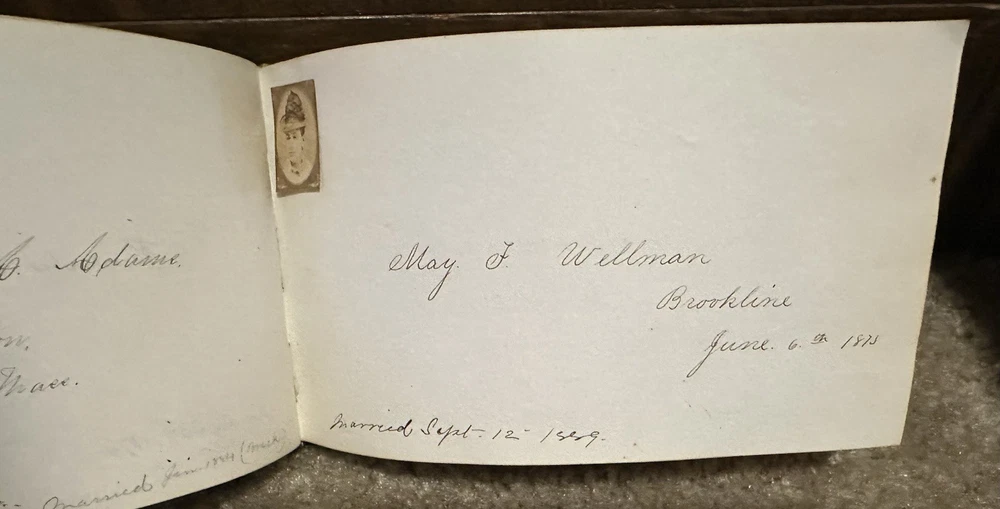 C. Adams.
Mass.
Married Jan. 1884
May. F. Wellman
Brookline
June. 6.th 1875
Married Sept. 12 1889.